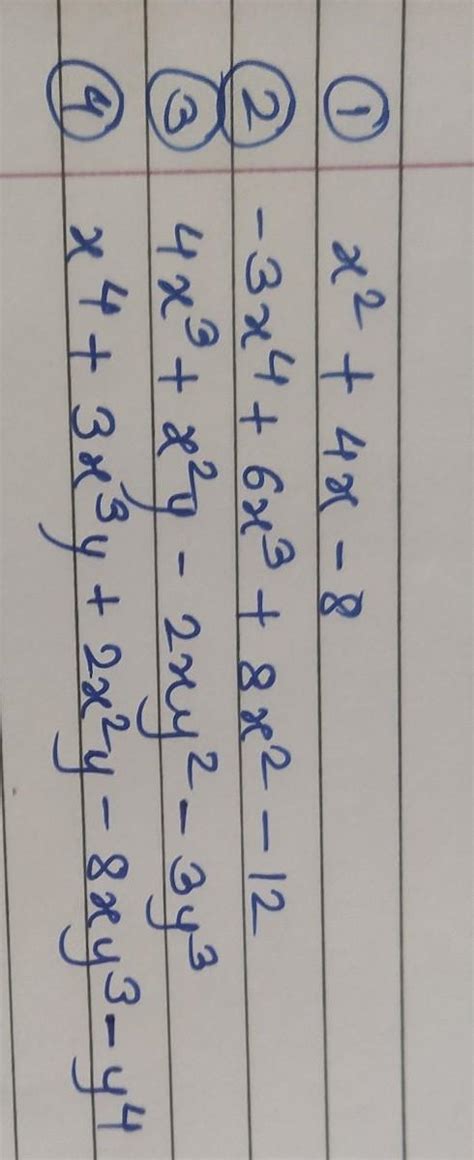 ① x² + 4x - 8
② -3x⁴ + 6x³ + 8x² - 12
③ 4x³ + x²y - 2xy² - 3y³
④ x⁴ + 3x³y + 2x²y - 8xy³ - y⁴